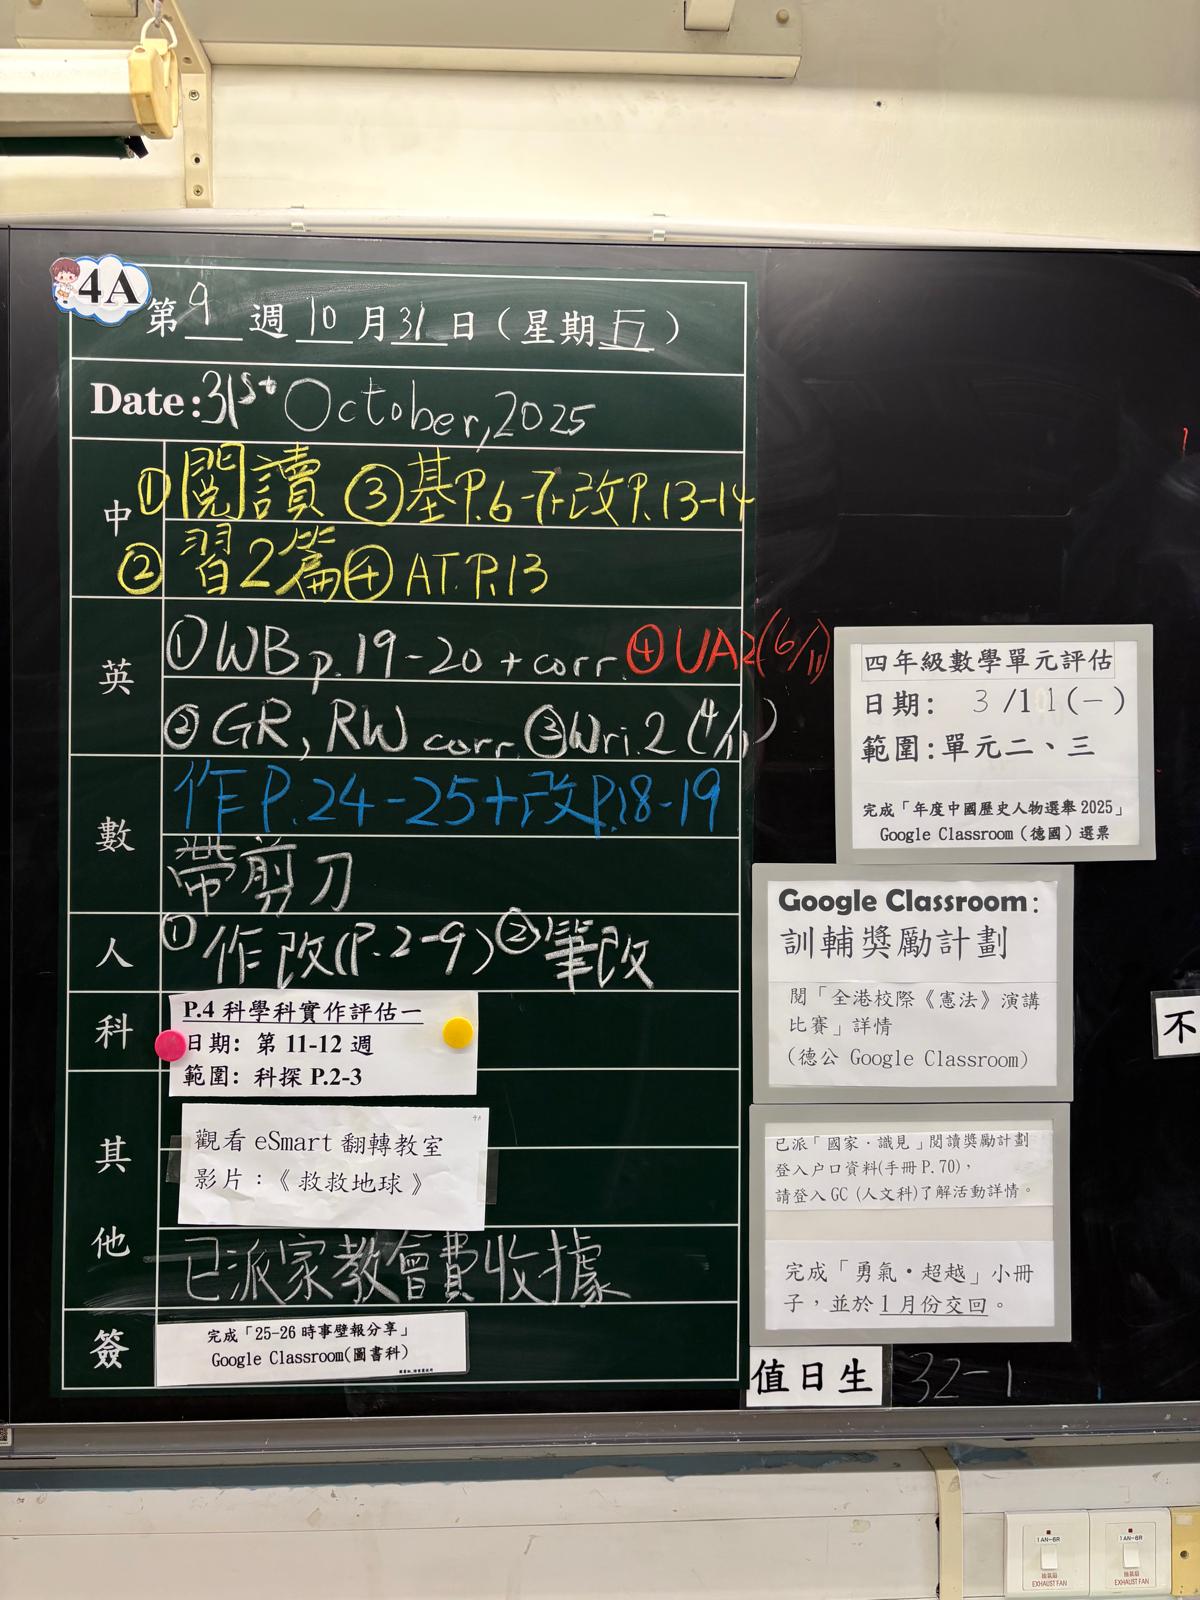 4A
第9週10月31日（星期五）
Date:31st October, 2025
中
①閱讀 ③基P.6-7+改P.13-14
②習2篇④AT.P.13
英
①WB p.19-20 + corr. ④UA2(6/11)
②GR, RW corr. ③Wri.2 (4/11)
數
作P.24-25+改P.18-19
帶剪刀
人
①作改(P.2-9)②筆改
科
P.4科學科實作評估一
日期: 第 11-12 週
範圍: 科探 P.2-3
其他
4A
觀看 eSmart 翻轉教室
影片：《 救救地球 》
已派家教會費收據
簽
完成「25-26 時事壁報分享」
Google Classroom(圖書科)
四年級數學單元評估
日期: 3/11(一)
範圍:單元二、三
完成「年度中國歷史人物選舉 2025」
Google Classroom（德國）選票
Google Classroom:
訓輔獎勵計劃
閱「全港校際《憲法》演講
比賽」詳情
(德公 Google Classroom)
已派「國家．識見」閱讀獎勵計劃
登入户口資料(手冊 P.70)，
請登入 GC (人文科)了解活動詳情。
完成「勇氣・超越」小冊
子，並於1月份交回。
值日生 32-1
不
1AN-6R
抽氣扇
EXHAUST FAN
1AN-6R
抽氣扇
EXHAUST FAN